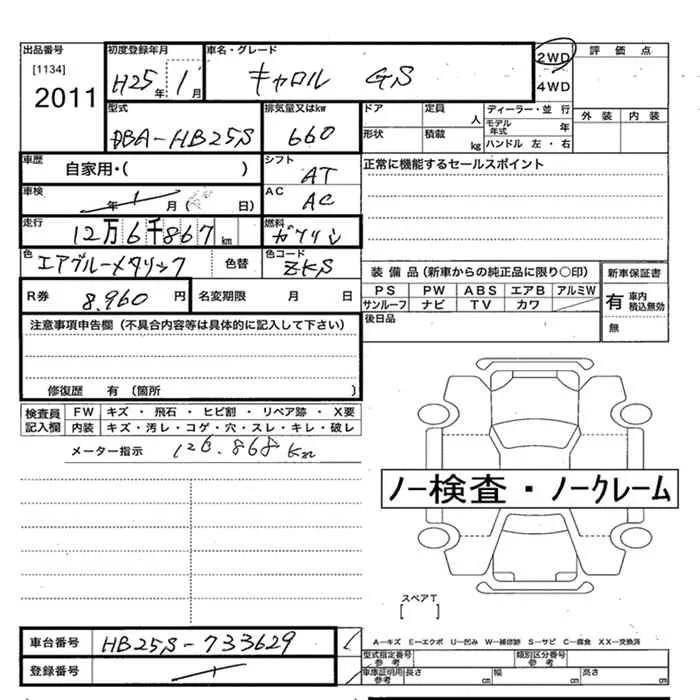 出品番号
[1134]
2011
初度登録年月
H25年 1月
車名・グレード
キャロル GS
2WD
4WD
評価点
外装 内装
型式
DBA-HB25S
排気量又はkw
660
ドア
定員 人
ディーラー・並行
モデル年式 年
形状
積載 kg
ハンドル 左・右
車歴
自家用・( )
シフト
AT
正常に機能するセールスポイント
車検
年 月( 日)
AC
AC
走行
12万6千867km
燃料
ガソリン
色
エアブルーメタリック
色替
色コード
ZKS
装備品(新車からの純正品に限り○印)
新車保証書
PS PW ABS エアB アルミW
サンルーフ ナビ TV カワ
有 車内積込無効
無
R券
8.960円
名変期限 月 日
後日品
注意事項申告欄(不具合内容等は具体的に記入して下さい)
修復歴 有(箇所 )
検査員記入欄
FW キズ・飛石・ヒビ割・リペア跡・X要
内装 キズ・汚レ・コゲ・穴・スレ・キレ・破レ
メーター指示 126.868Km
ノー検査・ノークレーム
スペアT
[ ]
車台番号
HB25S-733629
登録番号
A-キズ E-エクボ U-凹み W-補修跡 S-サビ C-腐食 XX-交換済
型式指定番号 参考
類別区分番号 参考
車庫証明用 参考
長さ cm 幅 cm 高さ cm